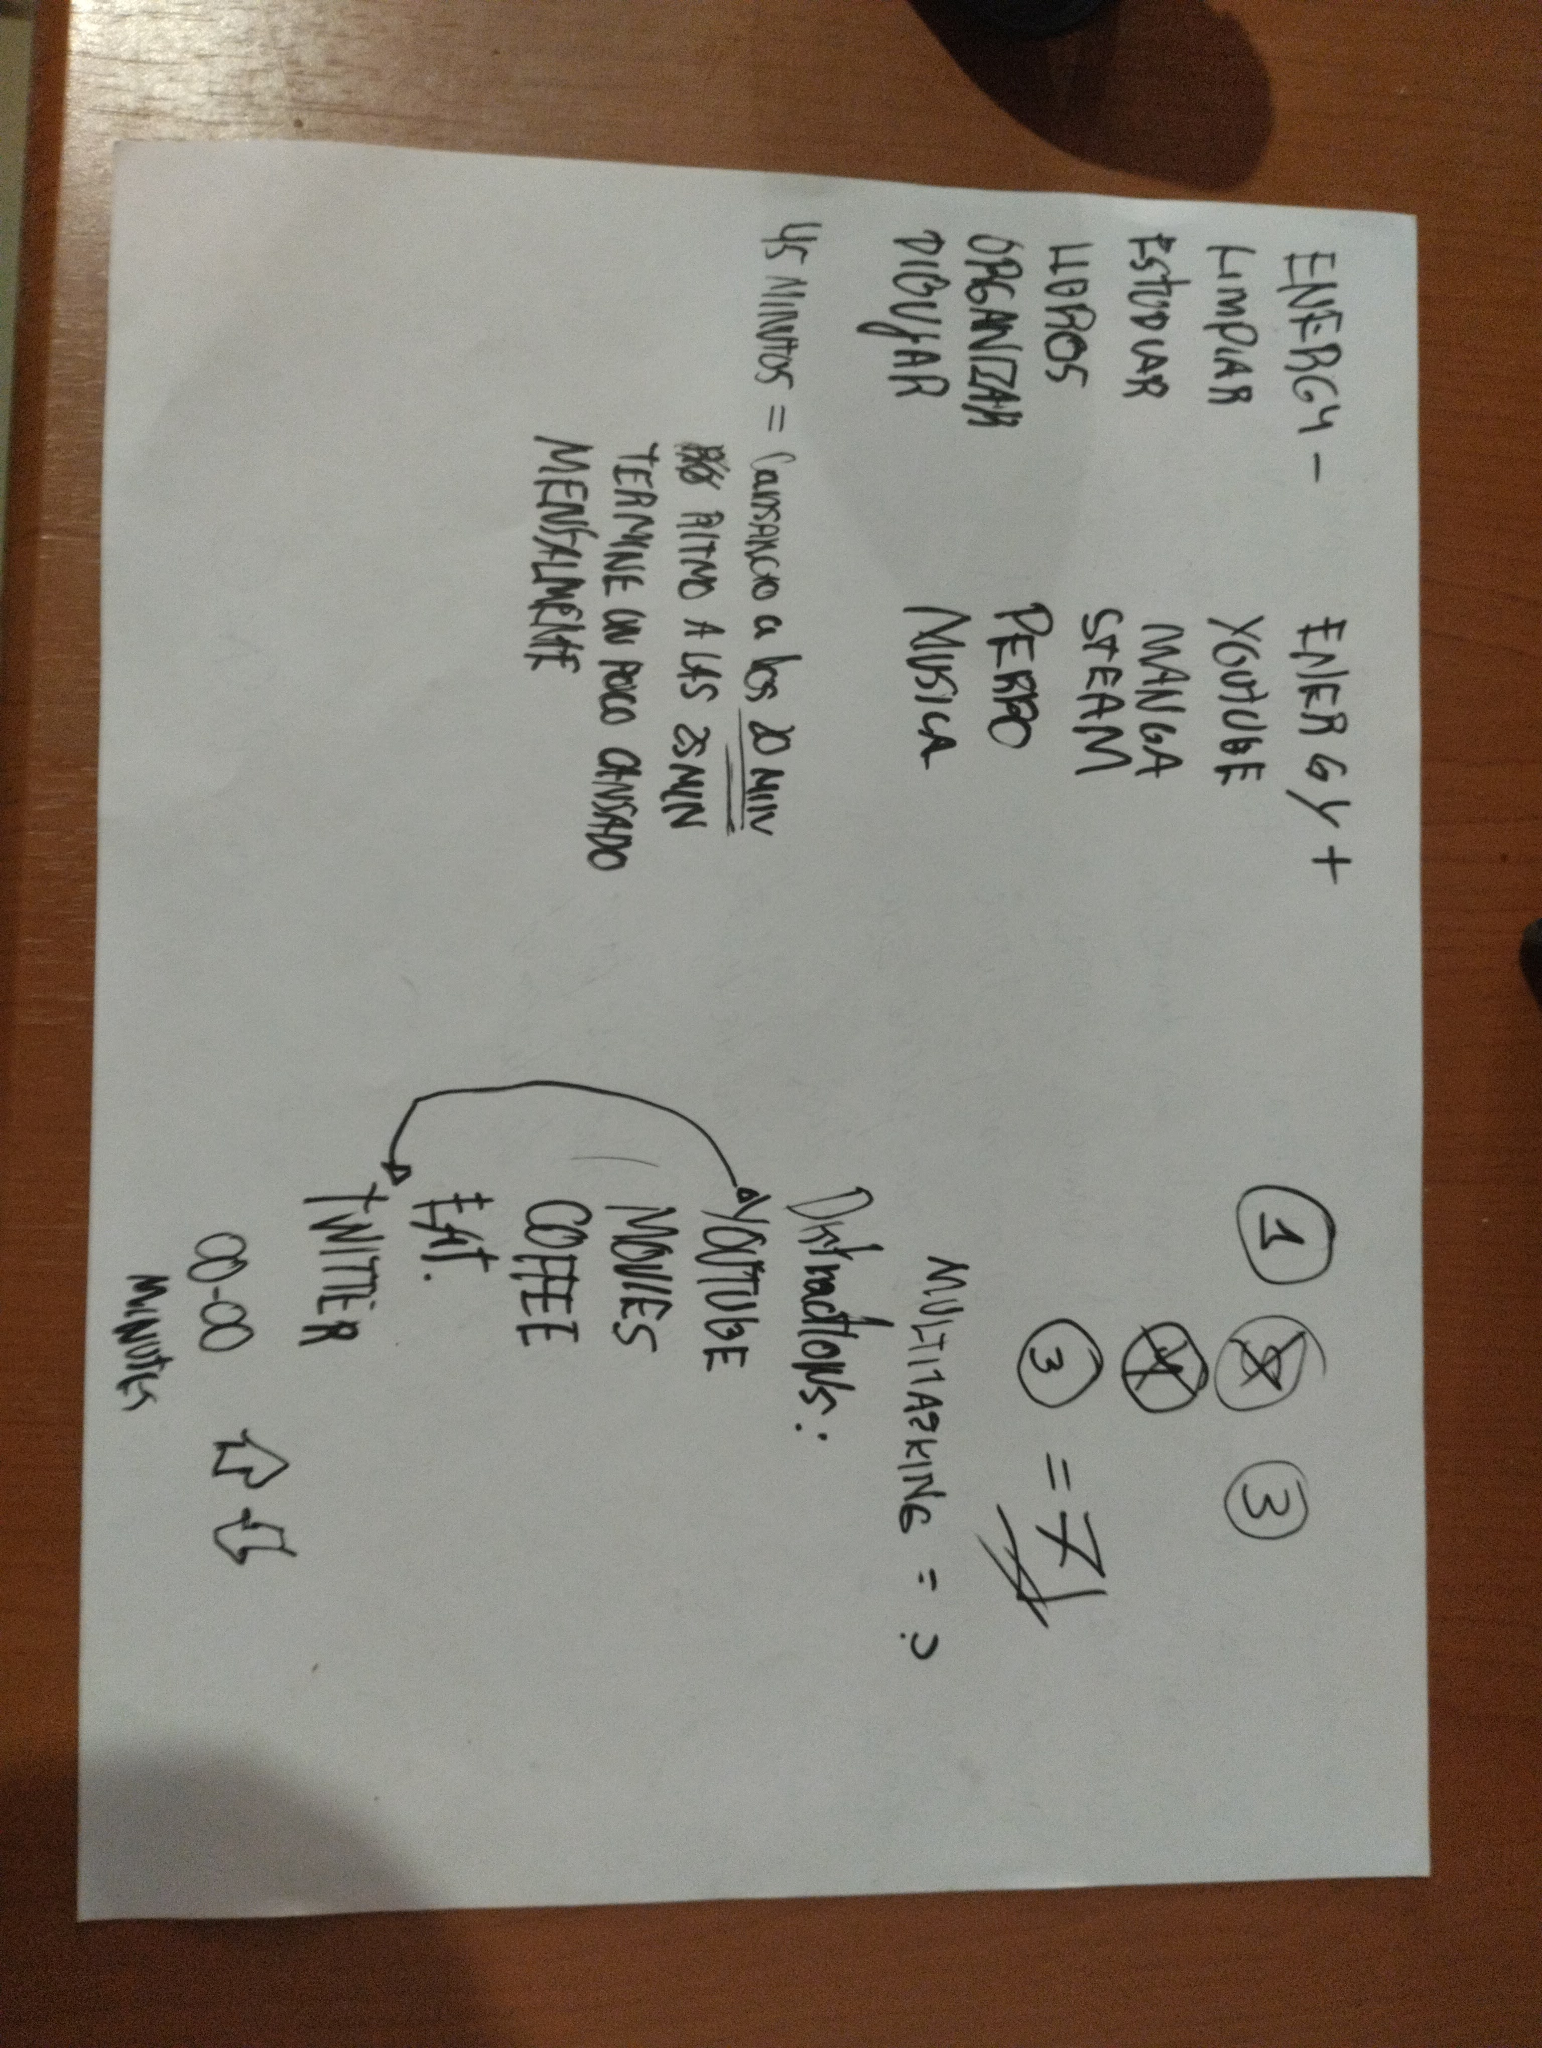 ENERGY -
LIMPIAR
ESTUDIAR
LIBROS
ORGANIZAR
DIBUJAR
ENERGY +
YOUTUBE
MANGA
STEAM
PERRO
MUSICA
45 MINUTOS = Cansancio a los 20 MIN
RITMO A LAS 25 MIN
TERMINE UN POCO CANSADO
MENTALMENTE
1 3
3 = 7
MULTITASKING = :)
Distractions:
YOUTUBE
MOVIES
COFFEE
EAT.
TWITTER
00-00
MINUTES